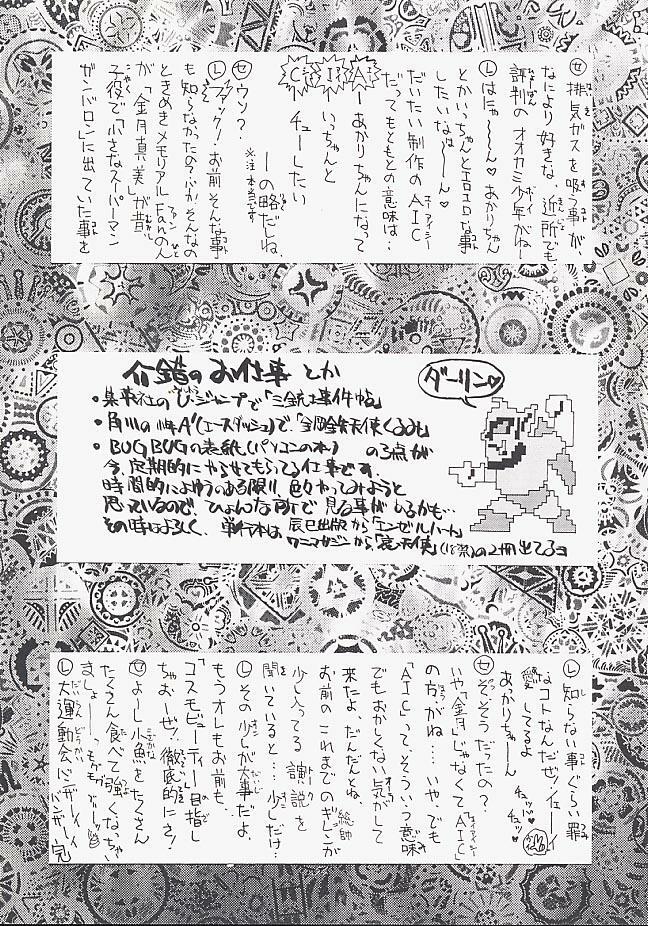 セ 排気ガスを吸う事が、
なにより好きな、近所でも
評判のオオカミ少年がねー
L はにゃ〜〜ん♡あかりちゃん
とかいっちゃんとエロエロな事
したいなぁ〜〜ん♡
だいたい制作のAIC
だってもともとの意味は…
A ーあかりちゃんになって
I ーいっちゃんと
C ーチューしたい
ーの略だしね。
※注 本当です
セ ウソ?
L ファック!お前そんな事
も知らなかったの?
ときめきメモリアルFanのん
が「金月真美」が昔
子役で「小さなスーパーマン
ガンバロン」に出ていた事を
介錯のお仕事とか
・集英社のVジャンプで「三銃士事件帖」
・角川の少年A'(エースダッシュ)で、「鋼鉄天使くるみ」
・BUGBUGの表紙(パソコンの本) の3点が
今、定期的にやらせてもらってる仕事です。
時間的によゆうのある限り、色々やってみようと
思っているので、ひょんな所で見る事がしるかも…
その時はよろしく、単行本は、辰巳出版から「エンゼルハート」
ワニマガジンから「天使」(18禁)の2冊出てるヨ
ダーリン♡
L 知らない事ぐらい罪
なコトなんだぜ!イェーイ
愛してるよ
あっかりちゃーん チュッ♡チュッ♡
セ そっそうだったの?
いや「金月」じゃなくて「AIC」
の方がね…いや、でも
「AIC」って、そういう意味
でもおかしくない気がして
来たよ、だんだんとね
お前のこれまでのギレン総帥が
少し入ってる演説を
聞いていると…少しだけ…
L その少しが大事だよ。
もうオレもお前も、
「コスモビューティー」目指し
ちゃおーぜ!徹底的にさ!
セ よーし小魚をたくさん
たくさん食べて強くなっちゃい
ましょーーっ モグモグ
L 大運動会バンザーーイ
バンザーイ 完